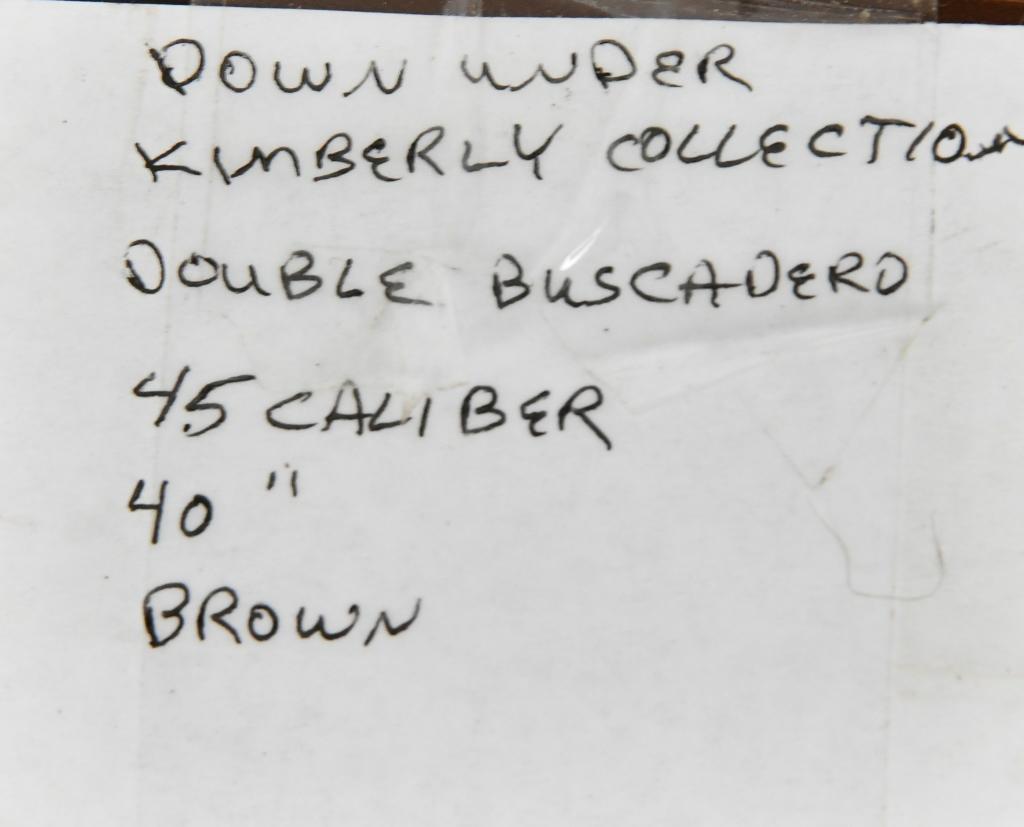 DOWN UNDER
KIMBERLY COLLECTION
DOUBLE BUSCADERO
45 CALIBER
40 "
BROWN